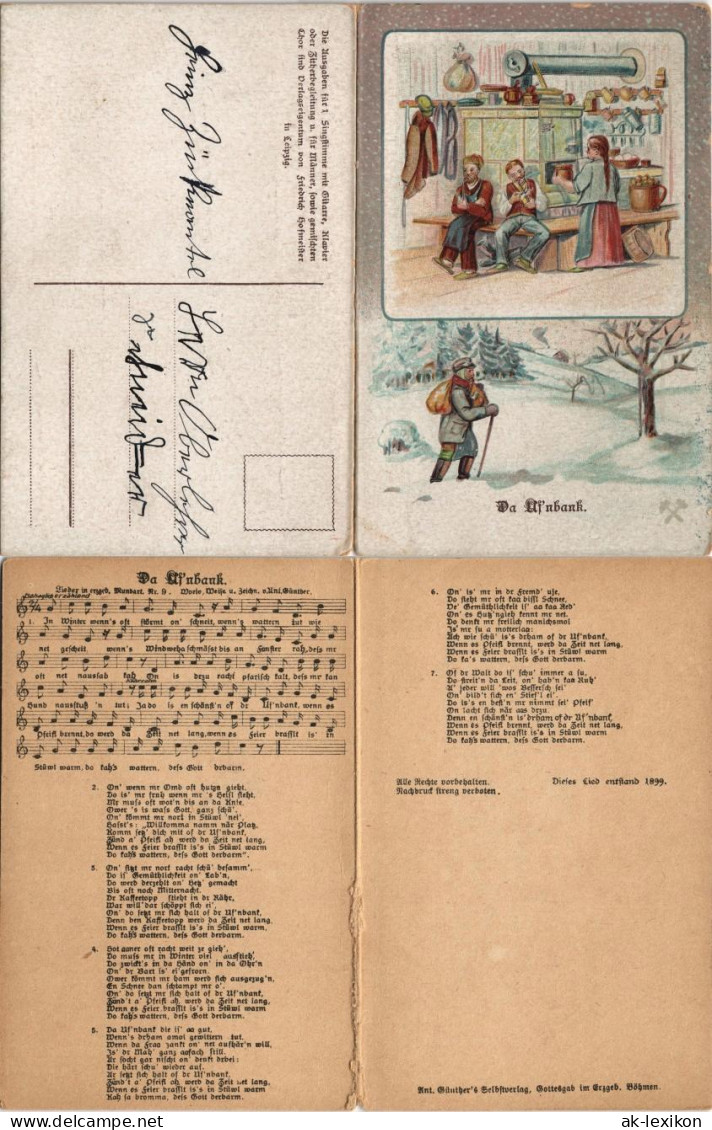 Die Ausgaben für 1 Singstimme mit Gitarre, Klavier
oder Zitherbegleitung u. für Männer, sowie gemischten
Chor sind Verlagseigentum von Friedrich Hofmeister
in Leipzig.
Da Uf'nbank.
Da Uf'nbank.
Lieder in erzgeb. Mundart. Nr. 9. Worte, Weise u. Zeichn. v. Ant. Günther.
1. In Winter wenn's oft stermt on' schneit, wenn's wattern tut wie
net gescheit, wenn's Windweha schmässt bis an Fanster rah, dess mr
oft net naussah kah On is derzu racht pfarisch kalt, dess mr kan
Hund nausstuß'n tut; Ja do is en schänst'n of dr Uf'nbank, wenn es
Pfeifl brennt, do werd da Zeit net lang, wenn es Feier brasslt is' in
Stüwl warm, do kah's wattern, dess Gott derbarm.
2. On' wenn mr Omd oft hutzn gieht,
Do is' mr fruh wenn mr 's Heisl sieht.
Mr muss oft wot'n bis an da Knie,
Ower 's is wass Gott, ganz schü'.
On' kömmt mr norl in Stüwl 'nei',
Hässt's: „Willkomma namm när Platz,
Komm setz' dich mit of dr Uf'nbank,
Zünd a' Pfeifl ah werd da Zeit net lang,
Wenn es Feier brasslt is's in Stüwl warm
Do kah's wattern, dess Gott derbarm".
3. On' sitzt mr norl racht schü' besamm',
Do is' Gemüthlichkeit on' Lab'n,
Do werd derzehlt on' Hetz' gemacht
Bis oft noch Mitternacht.
Dr Kaffeetopp stieht in dr Rähr,
War will' dar schöppt sich ei',
On' do setzt mr sich halt of dr Uf'nbank,
Denn ben Kaffeetopp werd da Zeit net lang,
Wenn es Feier brasslt is's in Stüwl warm,
Do kah's wattern, dess Gott derbarm.
4. Hot aaner oft racht weit ze gieh',
Do muss mr in Winter viel ausstieh',
Do zwickt's in da Händ on' in da Ohr'n
On' dr Bart is' ei'gefrorn.
Ower kömmt mr ham werd sich ausgezog'n,
En Schnee dan schlampt mr a'.
On' do setzt mr sich halt of dr Uf'nbank,
Zünd't a' Pfeifl ah, werd da Zeit net lang,
Wenn es Feier brasslt is's in Stüwl warm,
Do kah's wattern, dess Gott derbarm.
5. Da Uf'nbank die is' aa gut,
Wenn's drham amol gewittern tut.
Wenn da Fraa zankt on' net aufhär'n will,
Is' dr Mah' ganz aafach still.
Ar socht gar nischt on' denkt drbei:
Die härt schu' wieder auf.
Ar setzt sich halt of dr Uf'nbank,
Zünd't a' Pfeifl ah werd da Zeit net lang,
Wenn es Feier brasslt is's in Stüwl warm
Kah sa brumma, dess Gott derbarm.
6. On' is' mr in dr Fremd' uft,
Do sieht mr oft kaa bissl Schnee,
De' Gemüthlichkeit is' aa kaa Red'
On' es Hutz'ngieh kennt mr net.
Do denkt mr freilich manichsmol
Is' mr su a motterlaa:
Ach wie schü' is's drham of dr Uf'nbank,
Wenn es Pfeifl brennt, werd da Zeit net lang,
Wenn es Feier brasslt is's in Stüwl warm
Do ka's wattern, dess Gott derbarm.
7. Of dr Walt do is' schu' immer a su,
Do streit'n da Leit, on' hab'n kaa Ruh'
A' jeder will 'was Bessersch sei'
On' bild't sich en' Stief'l ei'.
Do is's en best'n mr nimmt sei' Pfeif'
On lacht sich när aus derzu.
Denn en schänst'n is' drham of dr Uf'nbank,
Wenn es Pfeifl brennt, werd da Zeit net lang,
Wenn es Feier brasslt is's in Stüwl warm
Do kah's wattern, dess Gott derbarm.
Alle Rechte vorbehalten. Dieses Lied entstand 1899.
Nachdruck streng verboten.
Ant. Günther's Selbstverlag, Gottesgab im Erzgeb. Böhmen.
ak-lexikon.com